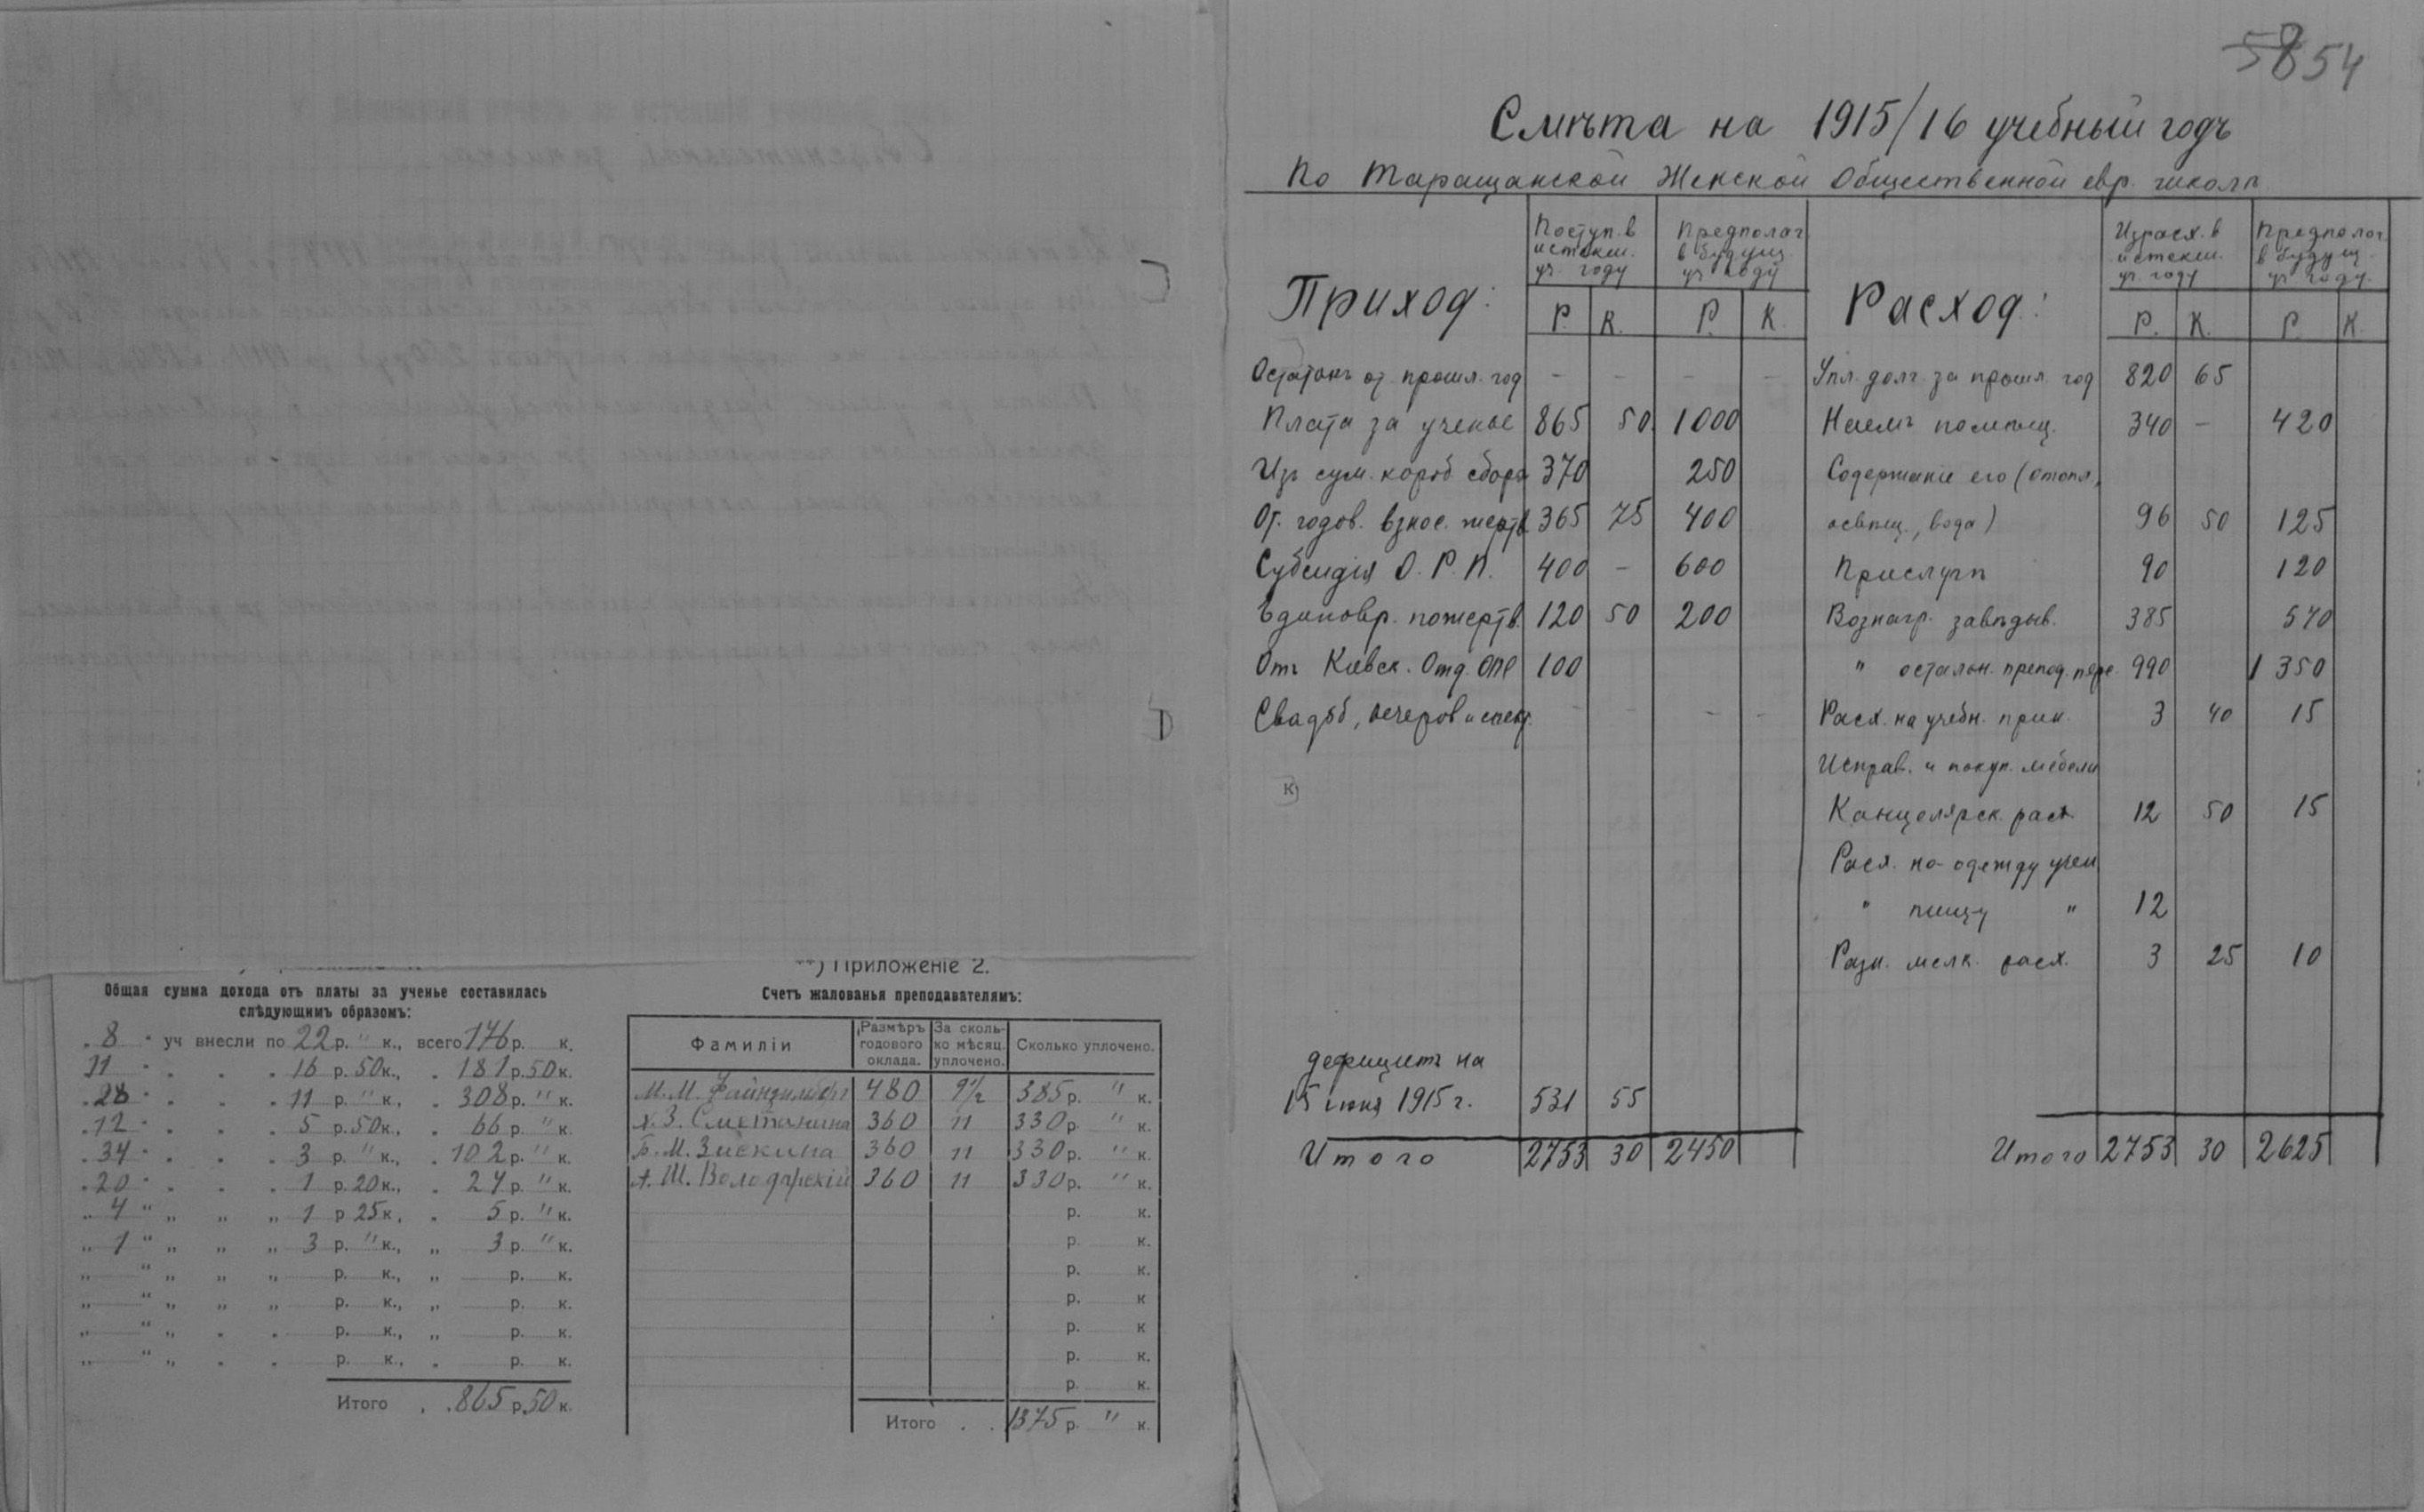 **) Приложеніе 2.
Общая сумма дохода отъ платы за ученье составилась
слѣдующимъ образомъ:
8 уч внесли по 22 р. " к., всего 176 р. к.
11 " " " 16 р. 50 к., " 181 р. 50 к.
28 " " " 11 р. " к., " 308 р. " к.
12 " " " 5 р. 50 к., " 66 р. " к.
34 " " " 3 р. " к., " 102 р. " к.
20 " " " 1 р. 20 к., " 24 р. " к.
„ 4 " „ „ „ 1 р 25 к. „ 5 р. " к.
„ 1 " „ „ „ 3 р. " к., „ 3 р. " к.
„ " „ „ „ р. к., „ р. к.
„ " „ „ „ р. к., „ р. к.
„ " „ . . р. к., „ р. к.
„ " „ . . р. к., . р. к.
Итого . . 865 р. 50 к.
Счетъ жалованья преподавателямъ:
Фамиліи
Размѣръ годового оклада.
За сколько мѣсяц. уплочено.
Сколько уплочено.
М. М. 480 9 1/2 385 р. " к.
Х. З. Сметанина 360 11 330 р. " к.
Б. М. Зискина 360 11 330 р. " к.
А. Ш. Володарскій 360 11 330 р. " к.
р. к.
р. к.
р. к.
р. к
р. к
р. к.
р. к.
Итого . . 1375 р. " к.
5854
Смѣта на 1915/16 учебный годъ
По Таращанской Женской Общественной евр. школѣ
Приход:
Поступ. в
истекш.
уч. году
Предполаг.
в будущ.
уч. году
Р. К. Р. К.
Остатокъ от прошл. год – – – –
Плата за ученье 865 50 1000
Изъ сум. короб сбора 370 250
От. годов. взнос. жертв 365 75 400
Субсидія О. Р. П. 400 – 600
Единовр. пожертв. 120 50 200
Отъ Кіевск. Отд. ОПЕ 100
Свадьб, вечеров и спект. – – – –
к)
дефицитъ на
15 іюня 1915 г. 531 55
Итого 2753 30 2450
Расход:
Израсх. в
истекш.
уч. году
Предполог.
в будущ.
уч. году.
Р. К. Р. К.
Упл. долг. за прошл. год 820 65
Наемъ помѣщ. 340 – 420
Содержаніе его (отопл,
освѣщ., вода) 96 50 125
Прислуги 90 120
Вознагр. завѣдыв. 385 570
" остальн. препод. 990 1350
Расх. на учебн. 3 40 15
Исправ. и покуп. мебели
Канцелярск. расх. 12 50 15
Расх. на одежду учен
" пищу " 12
Разн. мелк. расх. 3 25 10
Итого 2753 30 2625